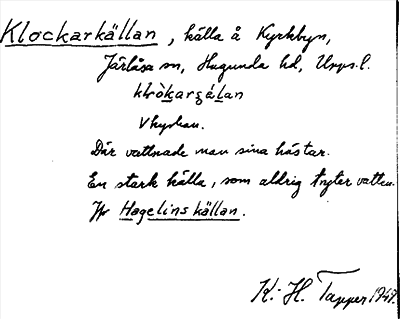 Klockarkällan, källa å Kyrkbyn,
Järlåsa sn, Hagunda hd, Upps. l.
V kyrkan.
Där vattnade man sina hästar.
En stark källa, som aldrig tryter vatten.
Jfr Hagelinskällan.
K.-H. Tapper 1947.